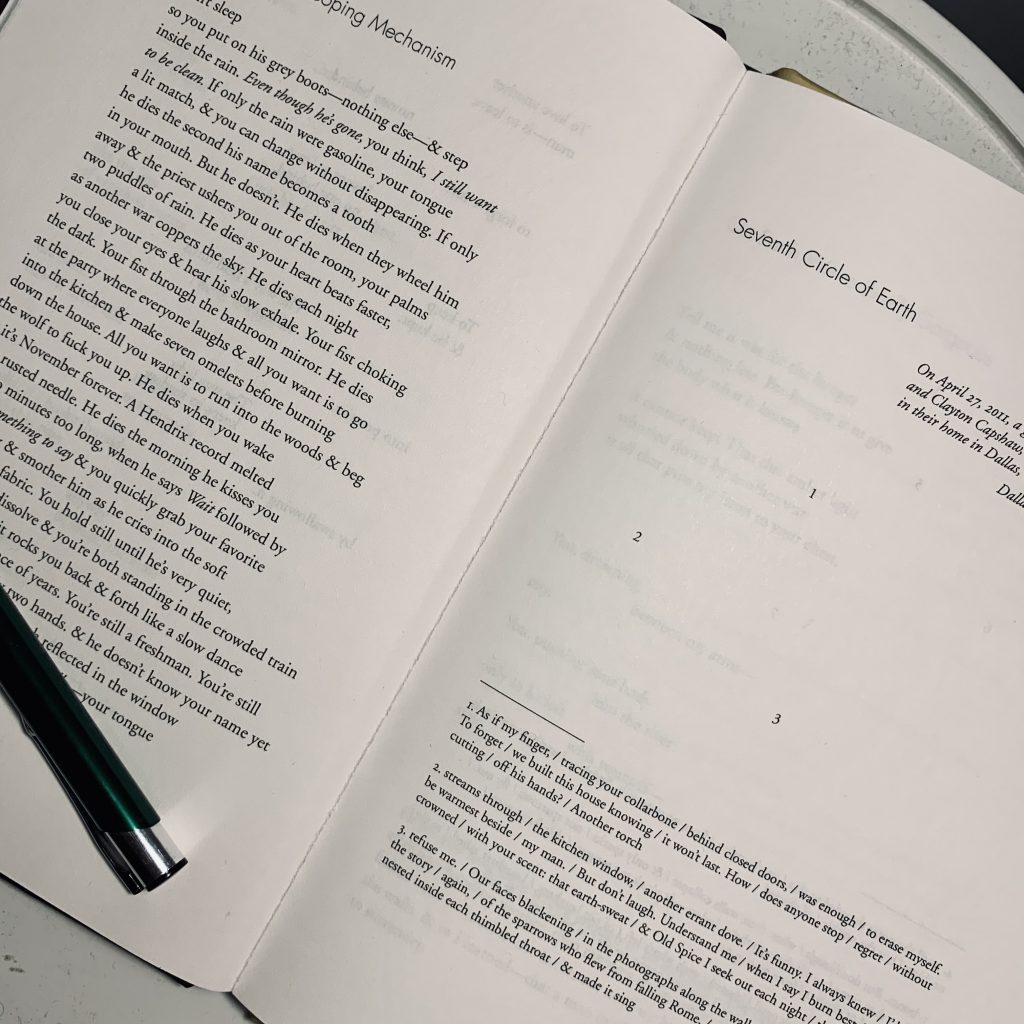 oping Mechanism
sleep
so you put on his grey boots—nothing else—& step
inside the rain. Even though he's gone, you think, I still want
to be clean. If only the rain were gasoline, your tongue
a lit match, & you can change without disappearing. If only
he dies the second his name becomes a tooth
in your mouth. But he doesn't. He dies when they wheel him
away & the priest ushers you out of the room, your palms
two puddles of rain. He dies as your heart beats faster,
as another war coppers the sky. He dies each night
you close your eyes & hear his slow exhale. Your fist choking
the dark. Your fist through the bathroom mirror. He dies
at the party where everyone laughs & all you want is to go
into the kitchen & make seven omelets before burning
down the house. All you want is to run into the woods & beg
the wolf to fuck you up. He dies when you wake
it's November forever. A Hendrix record melted
rusted needle. He dies the morning he kisses you
minutes too long, when he says Wait followed by
something to say & you quickly grab your favorite
& smother him as he cries into the soft
fabric. You hold still until he's very quiet,
dissolve & you're both standing in the crowded train
it rocks you back & forth like a slow dance
of years. You're still a freshman. You're still
two hands. & he doesn't know your name yet
reflected in the window
—your tongue
Seventh Circle of Earth
On April 27, 2011, a
and Clayton Capshaw,
in their home in Dallas,
1
2
3
1. As if my finger, / tracing your collarbone / behind closed doors, / was enough / to erase myself.
To forget / we built this house knowing / it won't last. How / does anyone stop / regret / without
cutting / off his hands? / Another torch
2. streams through / the kitchen window, / another errant dove. / It's funny. I always knew /
be warmest beside / my man. / But don't laugh. Understand me / when I say I burn best /
crowned / with your scent: that earth-sweat / & Old Spice I seek out each night /
3. refuse me. / Our faces blackening / in the photographs along the
the story / again, / of the sparrows who flew from falling Rome, /
nested inside each thimbled throat / & made it sing